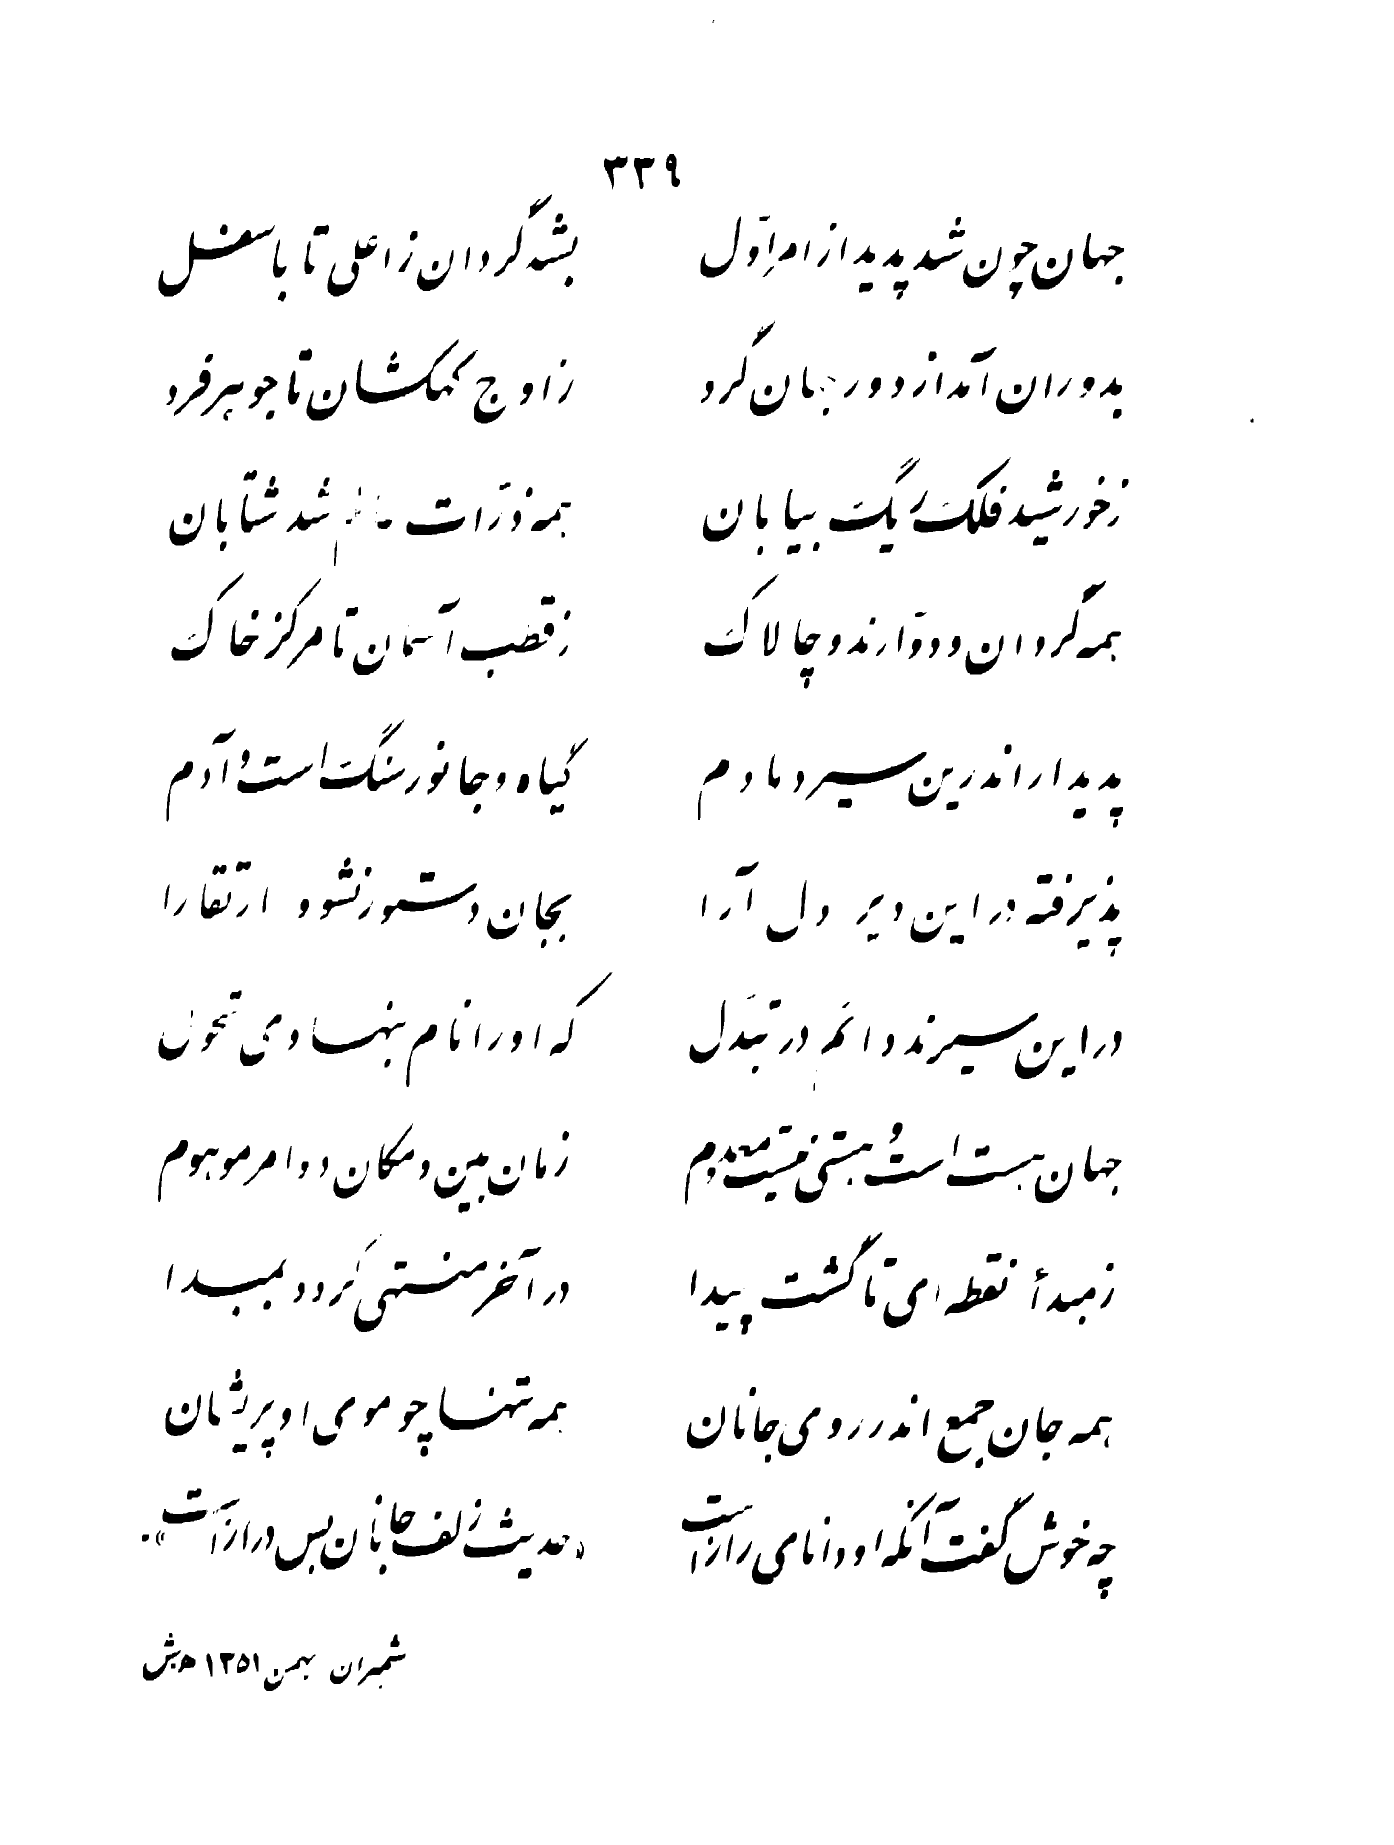 ۳۳۹
جهان چون شد پدید از امر اوّل بشد گردان ز اعلی تا باسفل
بدوران آمد از دور جهان گرد ز اوج کهکشان تا جوهر فرد
ز خورشید فلک ریگ بیابان همه ذرّات شد شتابان
همه گردان و دوّارند و چالاک ز قطب آسمان تا مرکز خاک
پدیدار اندرین سیر دمادم گیاه و جانور سنگ است و آدم
پذیرفته در این دیر دل آرا بجان دستور نشو و ارتقا را
در این سیرند دائم در تبدّل که او را نام بنهادی تحول
جهان هست است و هستی نیست معدوم زمان بین و مکان دو امر موهوم
ز مبدأ نقطه ای تا گشت پیدا در آخر منتهی گردد بمبدا
همه جان جمع اندر روی جانان همه تنها چو موی او پریشان
چه خوش گفت آنکه او دانای راز است «حدیث زلف جانان بس دراز است».
شمیران بهمن ۱۳۵۱ ه‍.ش